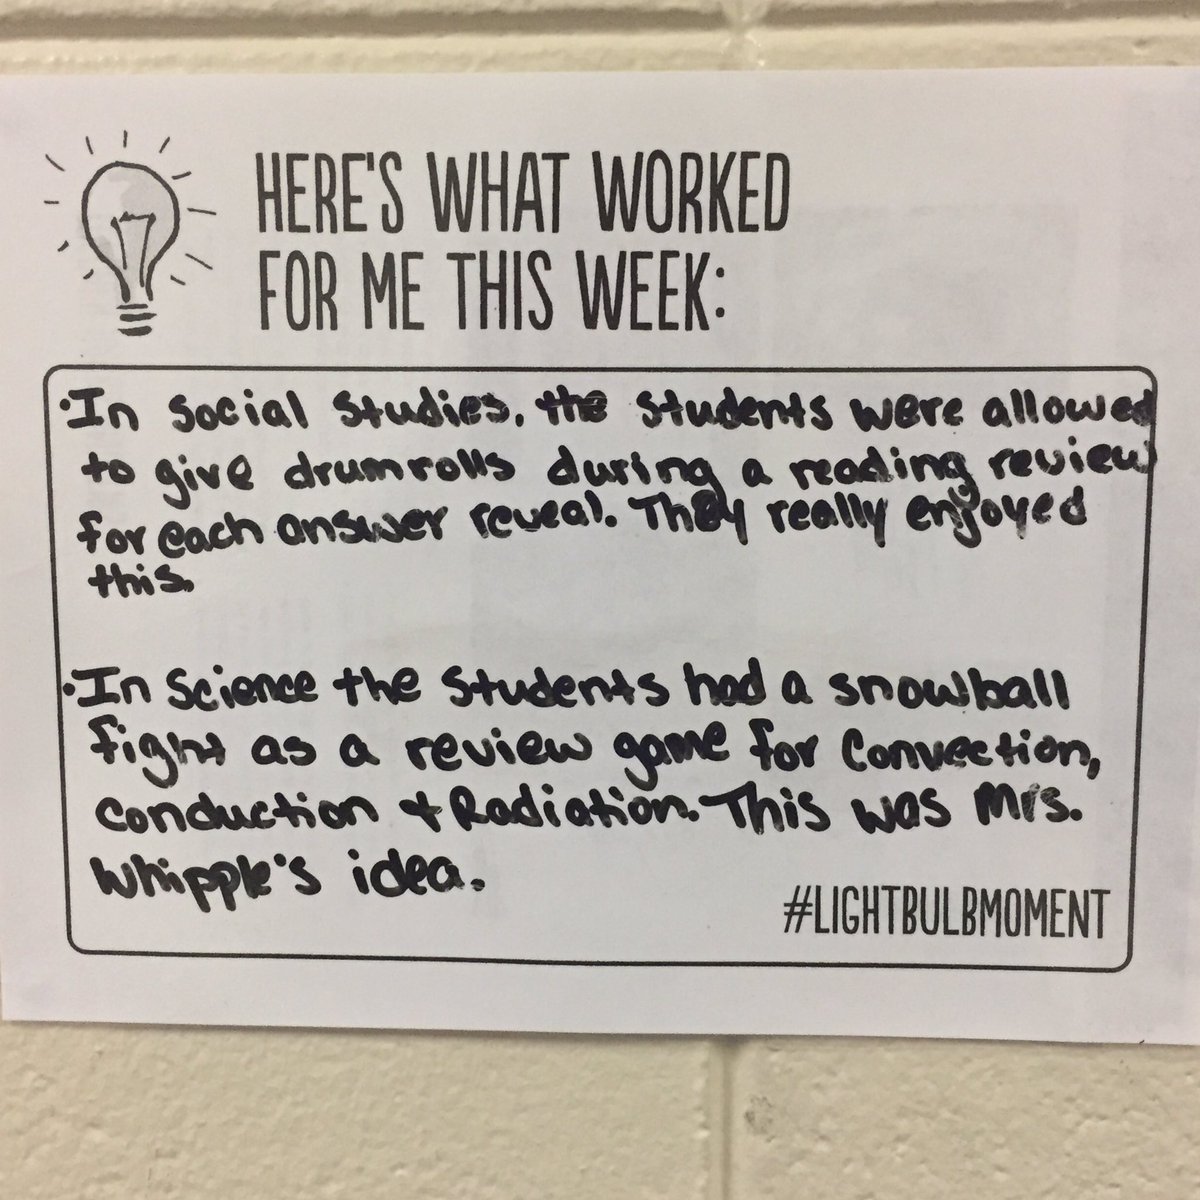 HERE'S WHAT WORKED
FOR ME THIS WEEK:
·In Social Studies, the students were allowed
to give drumrolls during a reading review
for each answer reveal. They really enjoyed
this.
·In Science the students had a snowball
fight as a review game for Convection,
conduction + Radiation. This was Mrs.
Whipple's idea.
#LIGHTBULBMOMENT